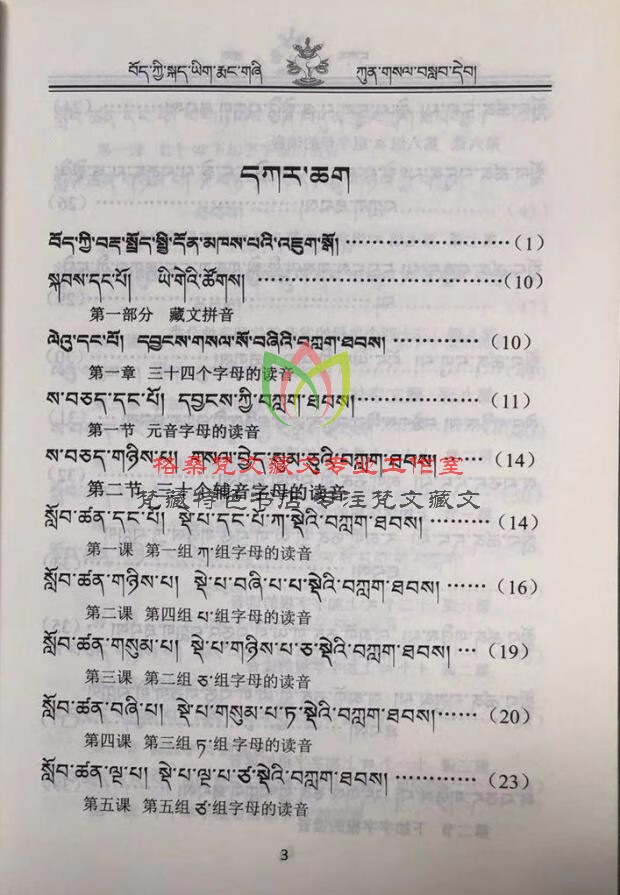 བོད་ཀྱི་སྐད་ཡིག་རྨང་གཞི ཀུན་གསལ་བསླབ་དེབ།
དཀར་ཆག
བོད་ཀྱི་བརྡ་སྤྲོད་སྤྱི་དོན་མཁས་པའི་འཇུག་སྒོ། ……………………(1)
སྐབས་དང་པོ། ཡི་གེའི་ཚོགས། ……………………(10)
第一部分 藏文拼音
ལེའུ་དང་པོ། དབྱངས་གསལ་སོ་བཞིའི་བཀླག་ཐབས། ……………(10)
第一章 三十四个字母的读音
ས་བཅད་དང་པོ། དབྱངས་ཀྱི་བཀླག་ཐབས།………………(11)
第一节 元音字母的读音
ས་བཅད་གཉིས་པ། གསལ་བྱེད་སུམ་ཅུའི་བཀླག་ཐབས།………(14)
格桑梵文藏文专业工作室
第二节 三十个辅音字母的读音
梵藏特色书店 专注梵文藏文
སློབ་ཚན་དང་པོ། སྡེ་པ་དང་པོ་ཀ་སྡེའི་བཀླག་ཐབས།………(14)
第一课 第一组ཀ་组字母的读音
སློབ་ཚན་གཉིས་པ། སྡེ་པ་བཞི་པ་པ་སྡེའི་བཀླག་ཐབས། ……(16)
第二课 第四组པ་组字母的读音
སློབ་ཚན་གསུམ་པ། སྡེ་པ་གཉིས་པ་ཅ་སྡེའི་བཀླག་ཐབས། …(19)
第三课 第二组ཅ་组字母的读音
སློབ་ཚན་བཞི་པ། སྡེ་པ་གསུམ་པ་ཏ་སྡེའི་བཀླག་ཐབས།……(20)
第四课 第三组ཏ་组字母的读音
སློབ་ཚན་ལྔ་པ། སྡེ་པ་ལྔ་པ་ཙ་སྡེའི་བཀླག་ཐབས། …………(23)
第五课 第五组ཙ་组字母的读音
3